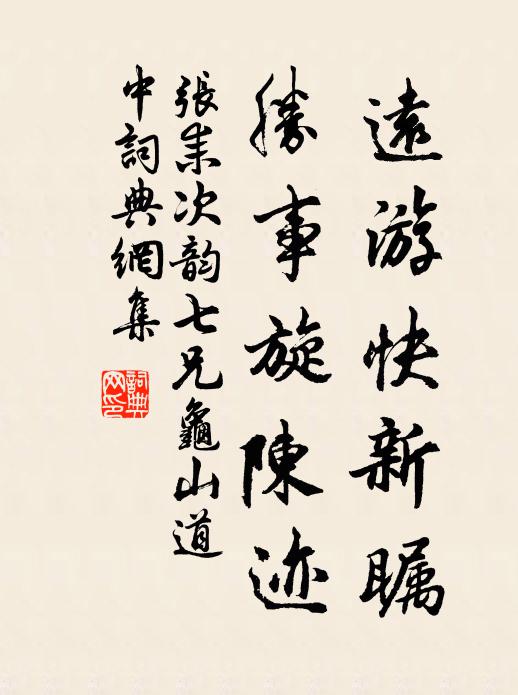 遠游快新瞩
勝事旋陳迹
張耒次韵七兄龜山道
中詞典網集
詞典
网印